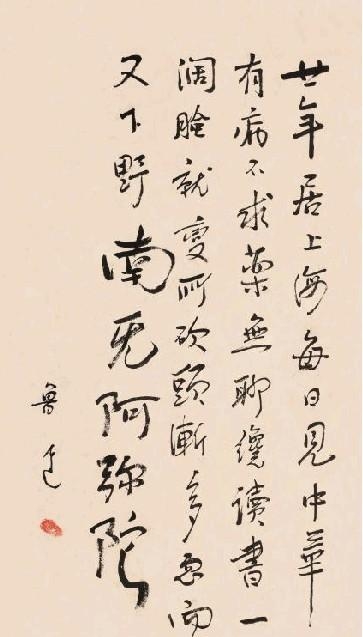 廿年居上海每日見中華
有病不求藥無聊纔讀書一
濶臉就變所砍頭漸多忽而
又下野南无阿弥陀
魯迅